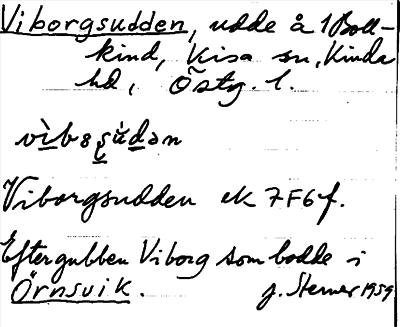 Viborgsudden, udde å 1 Boll-
kind, Kisa sn, Kinda
hd, Östg. l.
vìbosùdən
Viborgsudden ek 7F6f.
Efter gubben Viborg som bodde i
Örnsvik. J. Sterner 1959